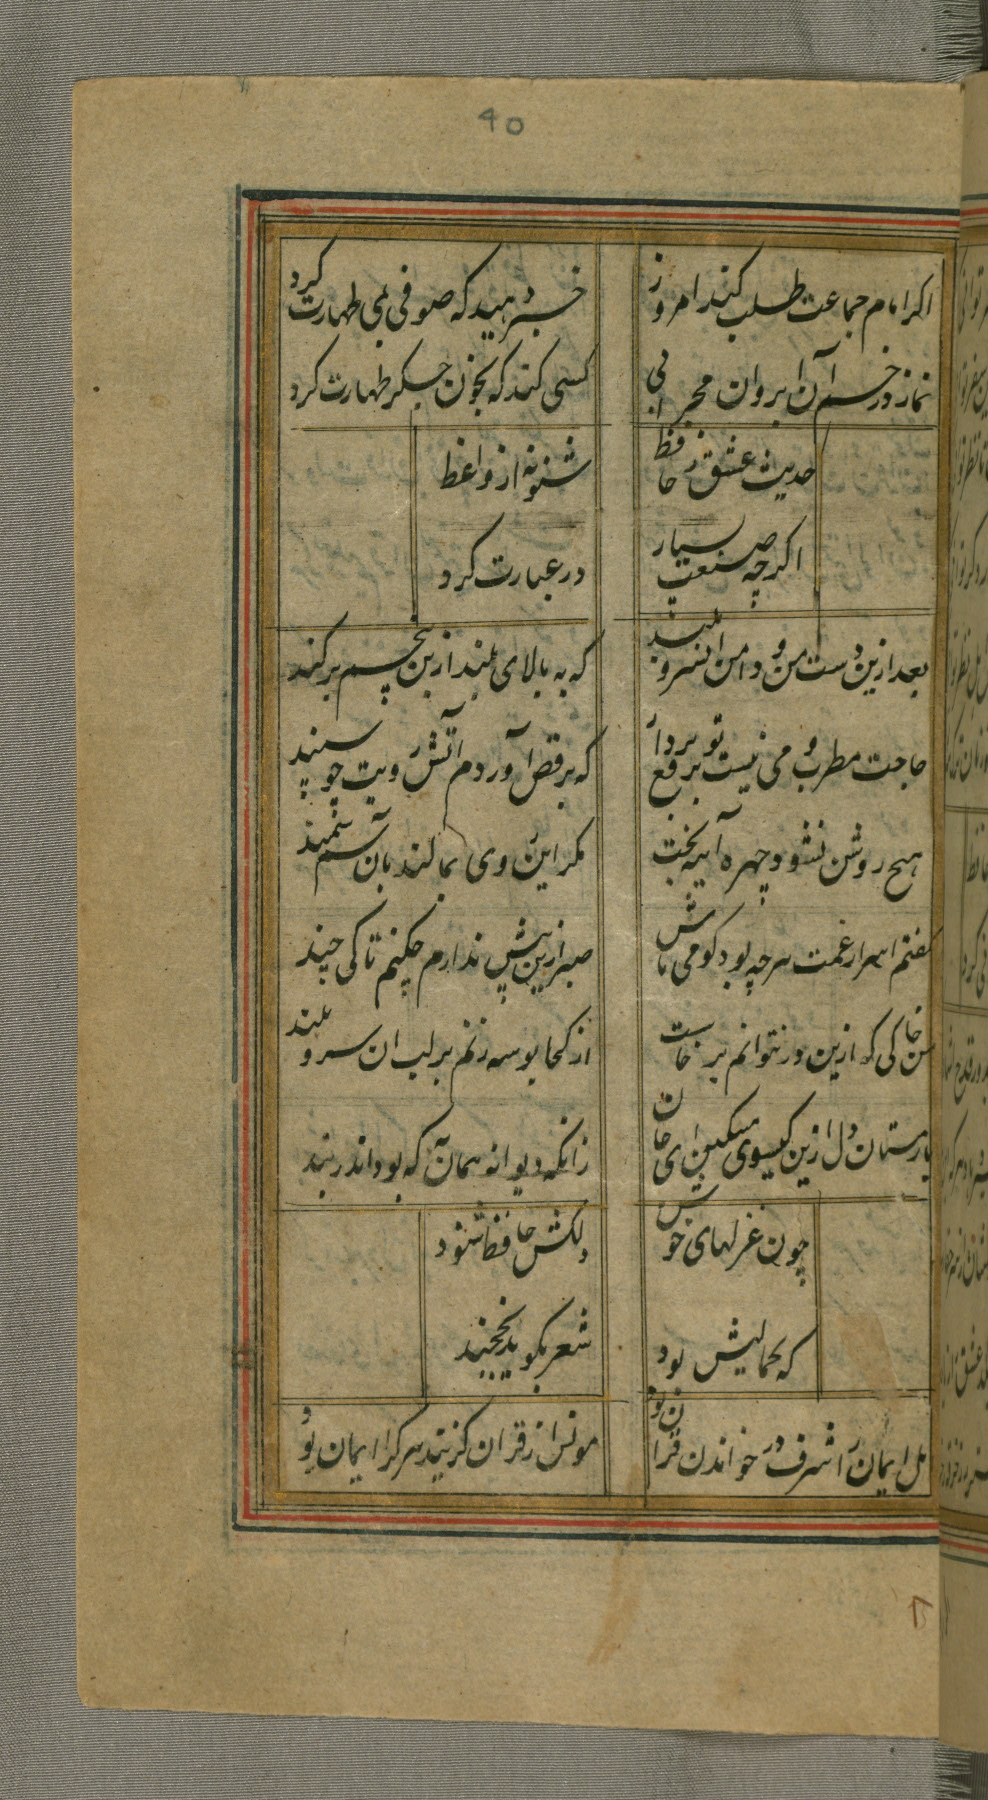 40
اکر امام جماعت طلب کند امروز
خبر دهید که صوفی بمی طهارت کرد
نماز در خم آن ابروان محرابی
کسی کند که بخون جکر طهارت کرد
حدیث عشق ز حافظ
شنو نه از واعظ
اکرچه صنعت بسیار
در عبارت کرد
بعد ازین دست من و دامن آن سرو بلند
که به بالای بلند از بن و بیخم برکند
حاجت مطرب و می نیست تو برقع بردار
که برقص آوردم آتش رویت چو سپند
هیچ روشن نشود چهره آیینه بخت
مکر این روی بمالند بآن سم سمند
کفتم اسرار غمت هرچه بود کو می باش
صبر ازین بیش ندارم چکنم تا کی چند
من خاکی که ازین در نتوانم برخاست
از کجا بوسه زنم بر لب ان سرو بلند
باز مستان دل ازین کیسوی مسکین ای جان
زانکه دیوانه همان که بود اندر بند
چون غزلهای خوش
دلکش حافظ شنود
که کمالیش بود
شعر بکوید بخجند
اهل ایمان را شرف در خواندن قران بود
مونس از قران کزیند هر کرا ایمان بود